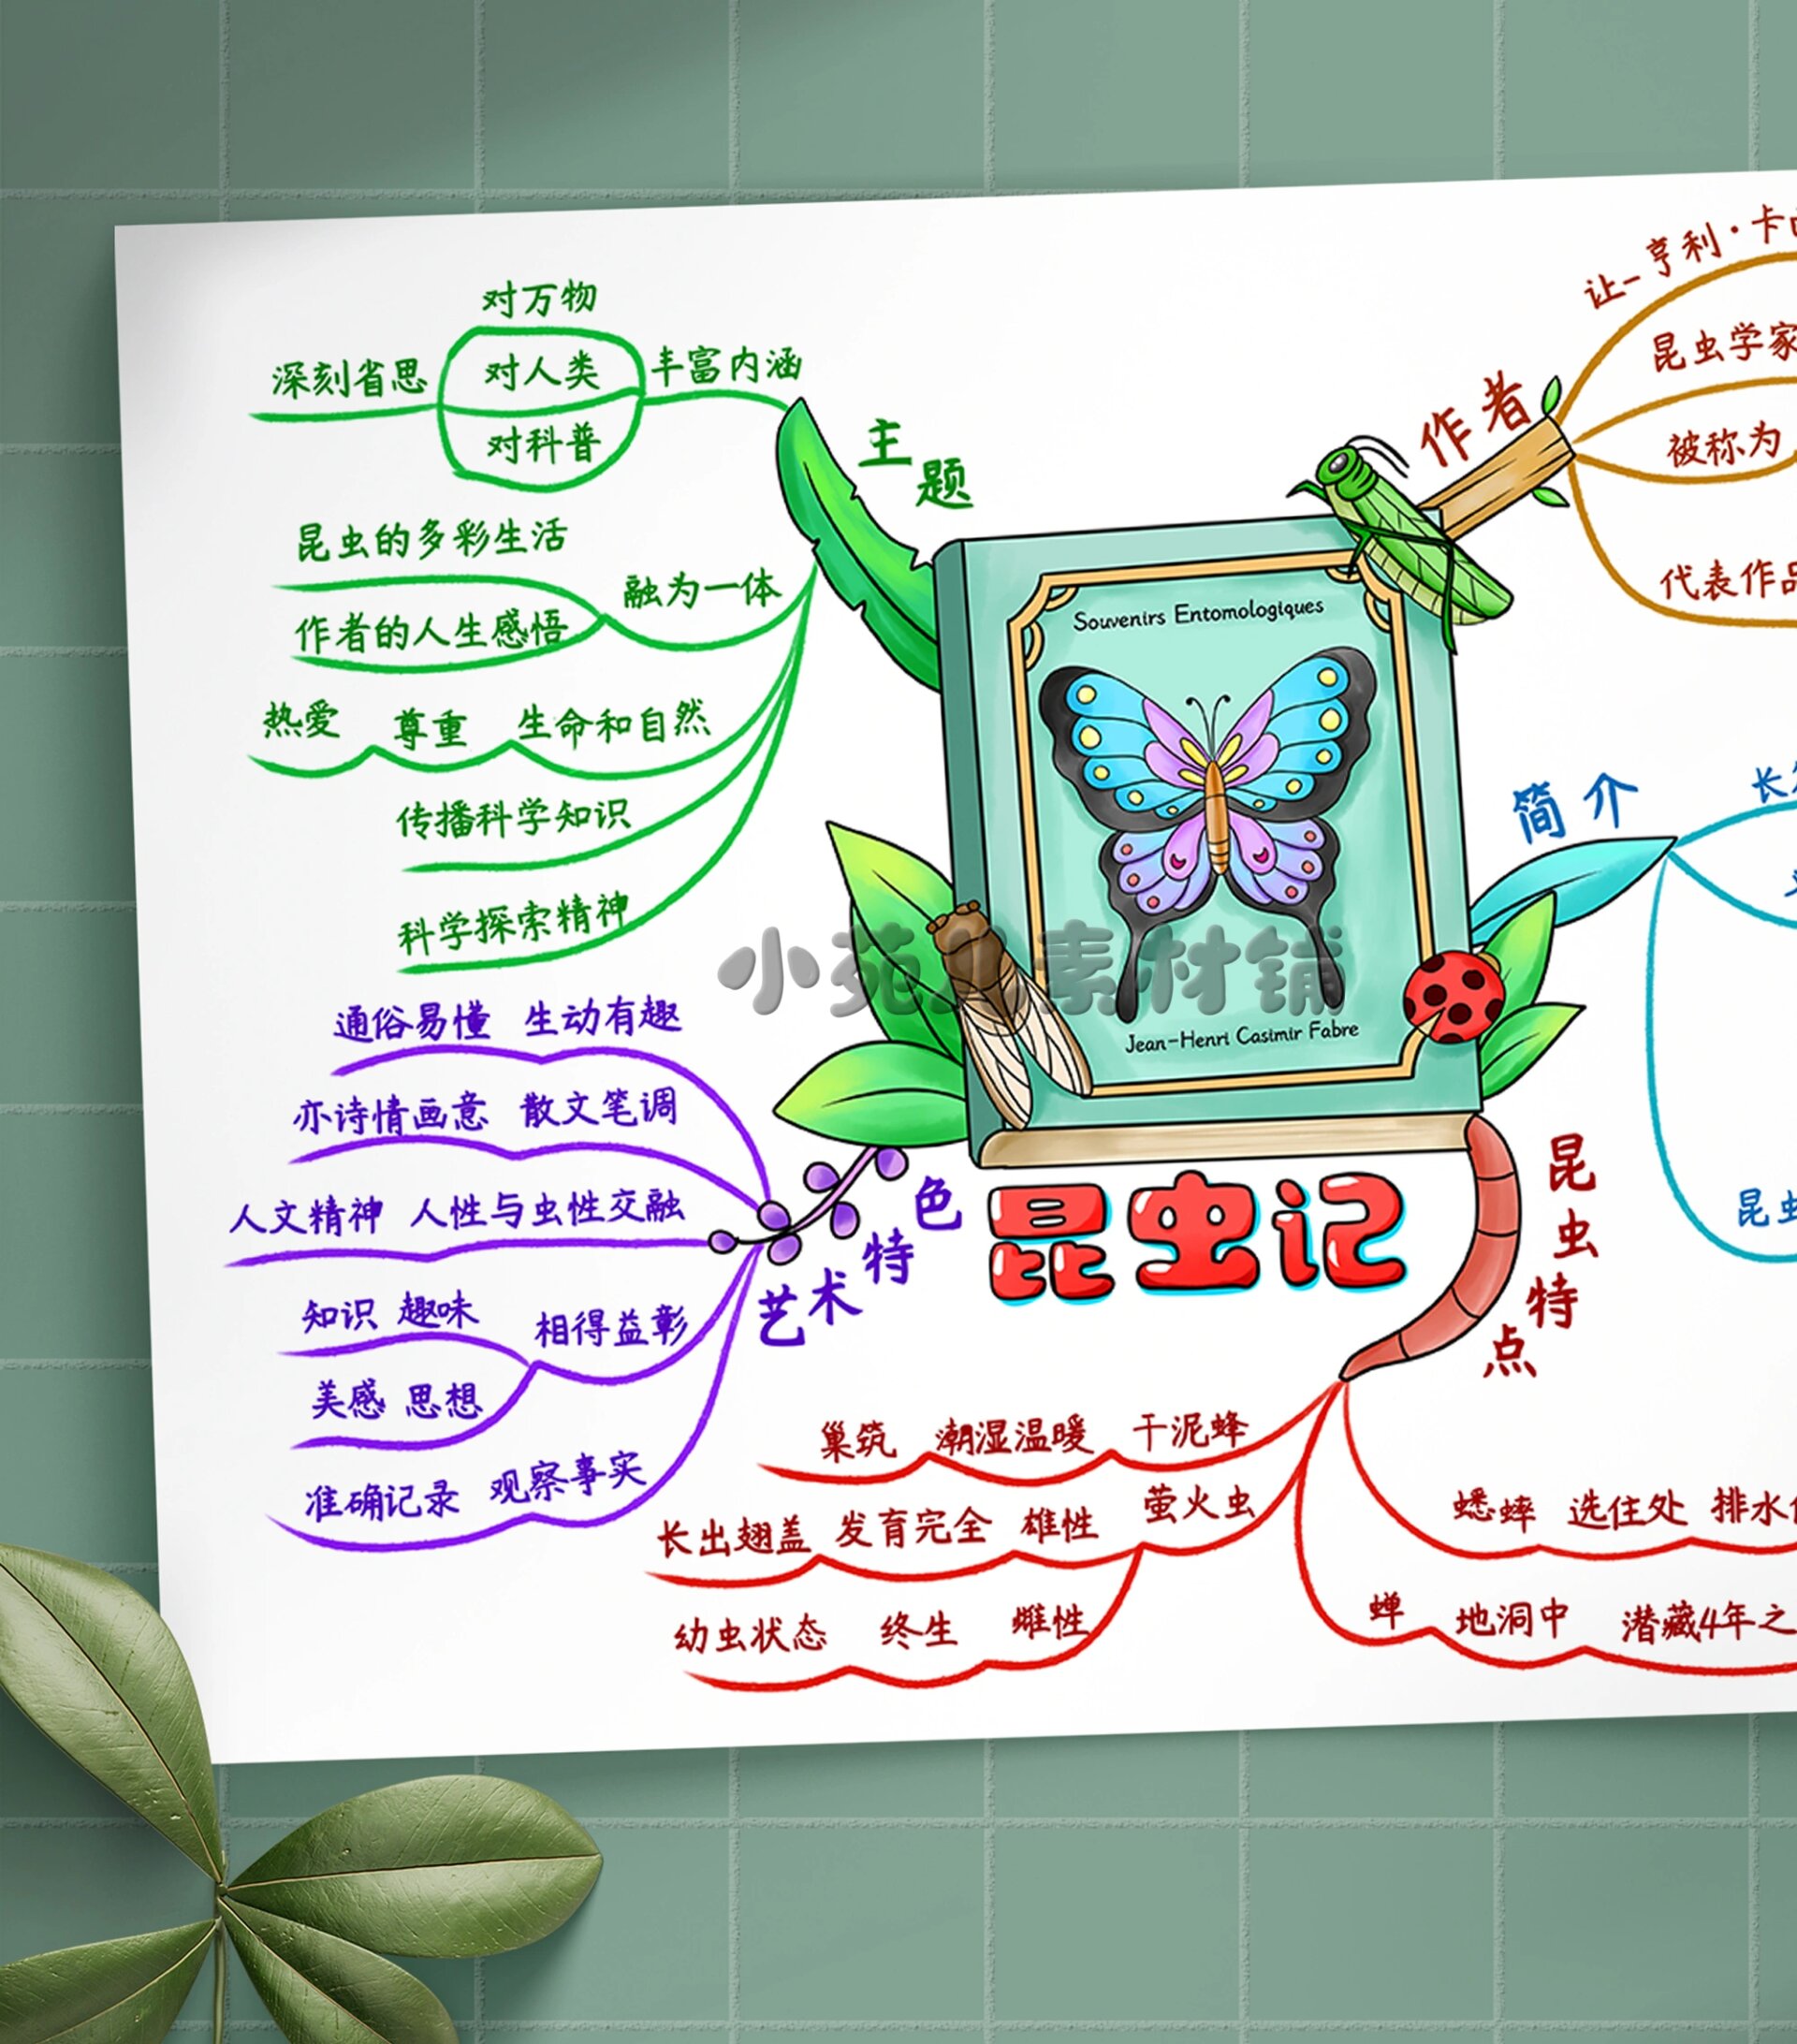 对万物
深刻省思
对人类
对科普
丰富内涵
主题
昆虫的多彩生活
作者的人生感悟
融为一体
热爱 尊重 生命和自然
传播科学知识
科学探索精神
通俗易懂 生动有趣
亦诗情画意 散文笔调
人文精神 人性与虫性交融
知识 趣味
美感 思想
相得益彰
准确记录 观察事实
艺术特色
Souvenirs Entomologiques
Jean-Henri Casimir Fabre
小苑儿素材铺
昆虫记
作者
让-亨利·卡
昆虫学家
被称为
代表作品
简介
长
昆虫
昆虫特点
巢筑 潮湿温暖 干泥蜂
长出翅盖 发育完全 雄性 萤火虫
幼虫状态 终生 雌性
蟋蟀 选住处 排水
蝉 地洞中 潜藏4年之